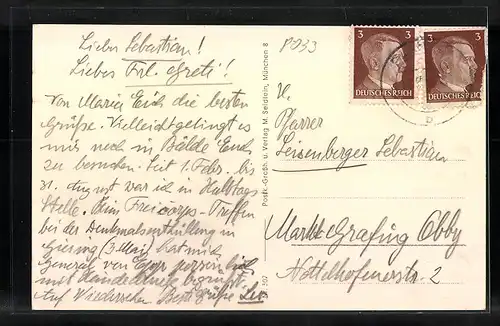 Lieber Sebastian!
Liebes Frl. Greti!
Von Maria Eich die besten
Grüße. Vielleicht gelingt es
mir noch in Bälde Euch
zu besuchen. Seit 1. Febr. bis
31. August war ich in Halbtags
Stelle. Beim Freicorps-Treffen
bei der Denkmalsenthüllung in
Giesing (3. Mai) hat mich
General von Epp persönlich
mit Händedruck begrüßt.
Auf Wiedersehn Beste Grüße
Postk.-Großh. u. Verlag M. Seidlein, München 8
3
DEUTSCHES REICH
3
DEUTSCHES REICH
H.
Pfarrer
Leisenberger Sebastian
Markt Grafing Obby
Nottelhofenerstr. 2